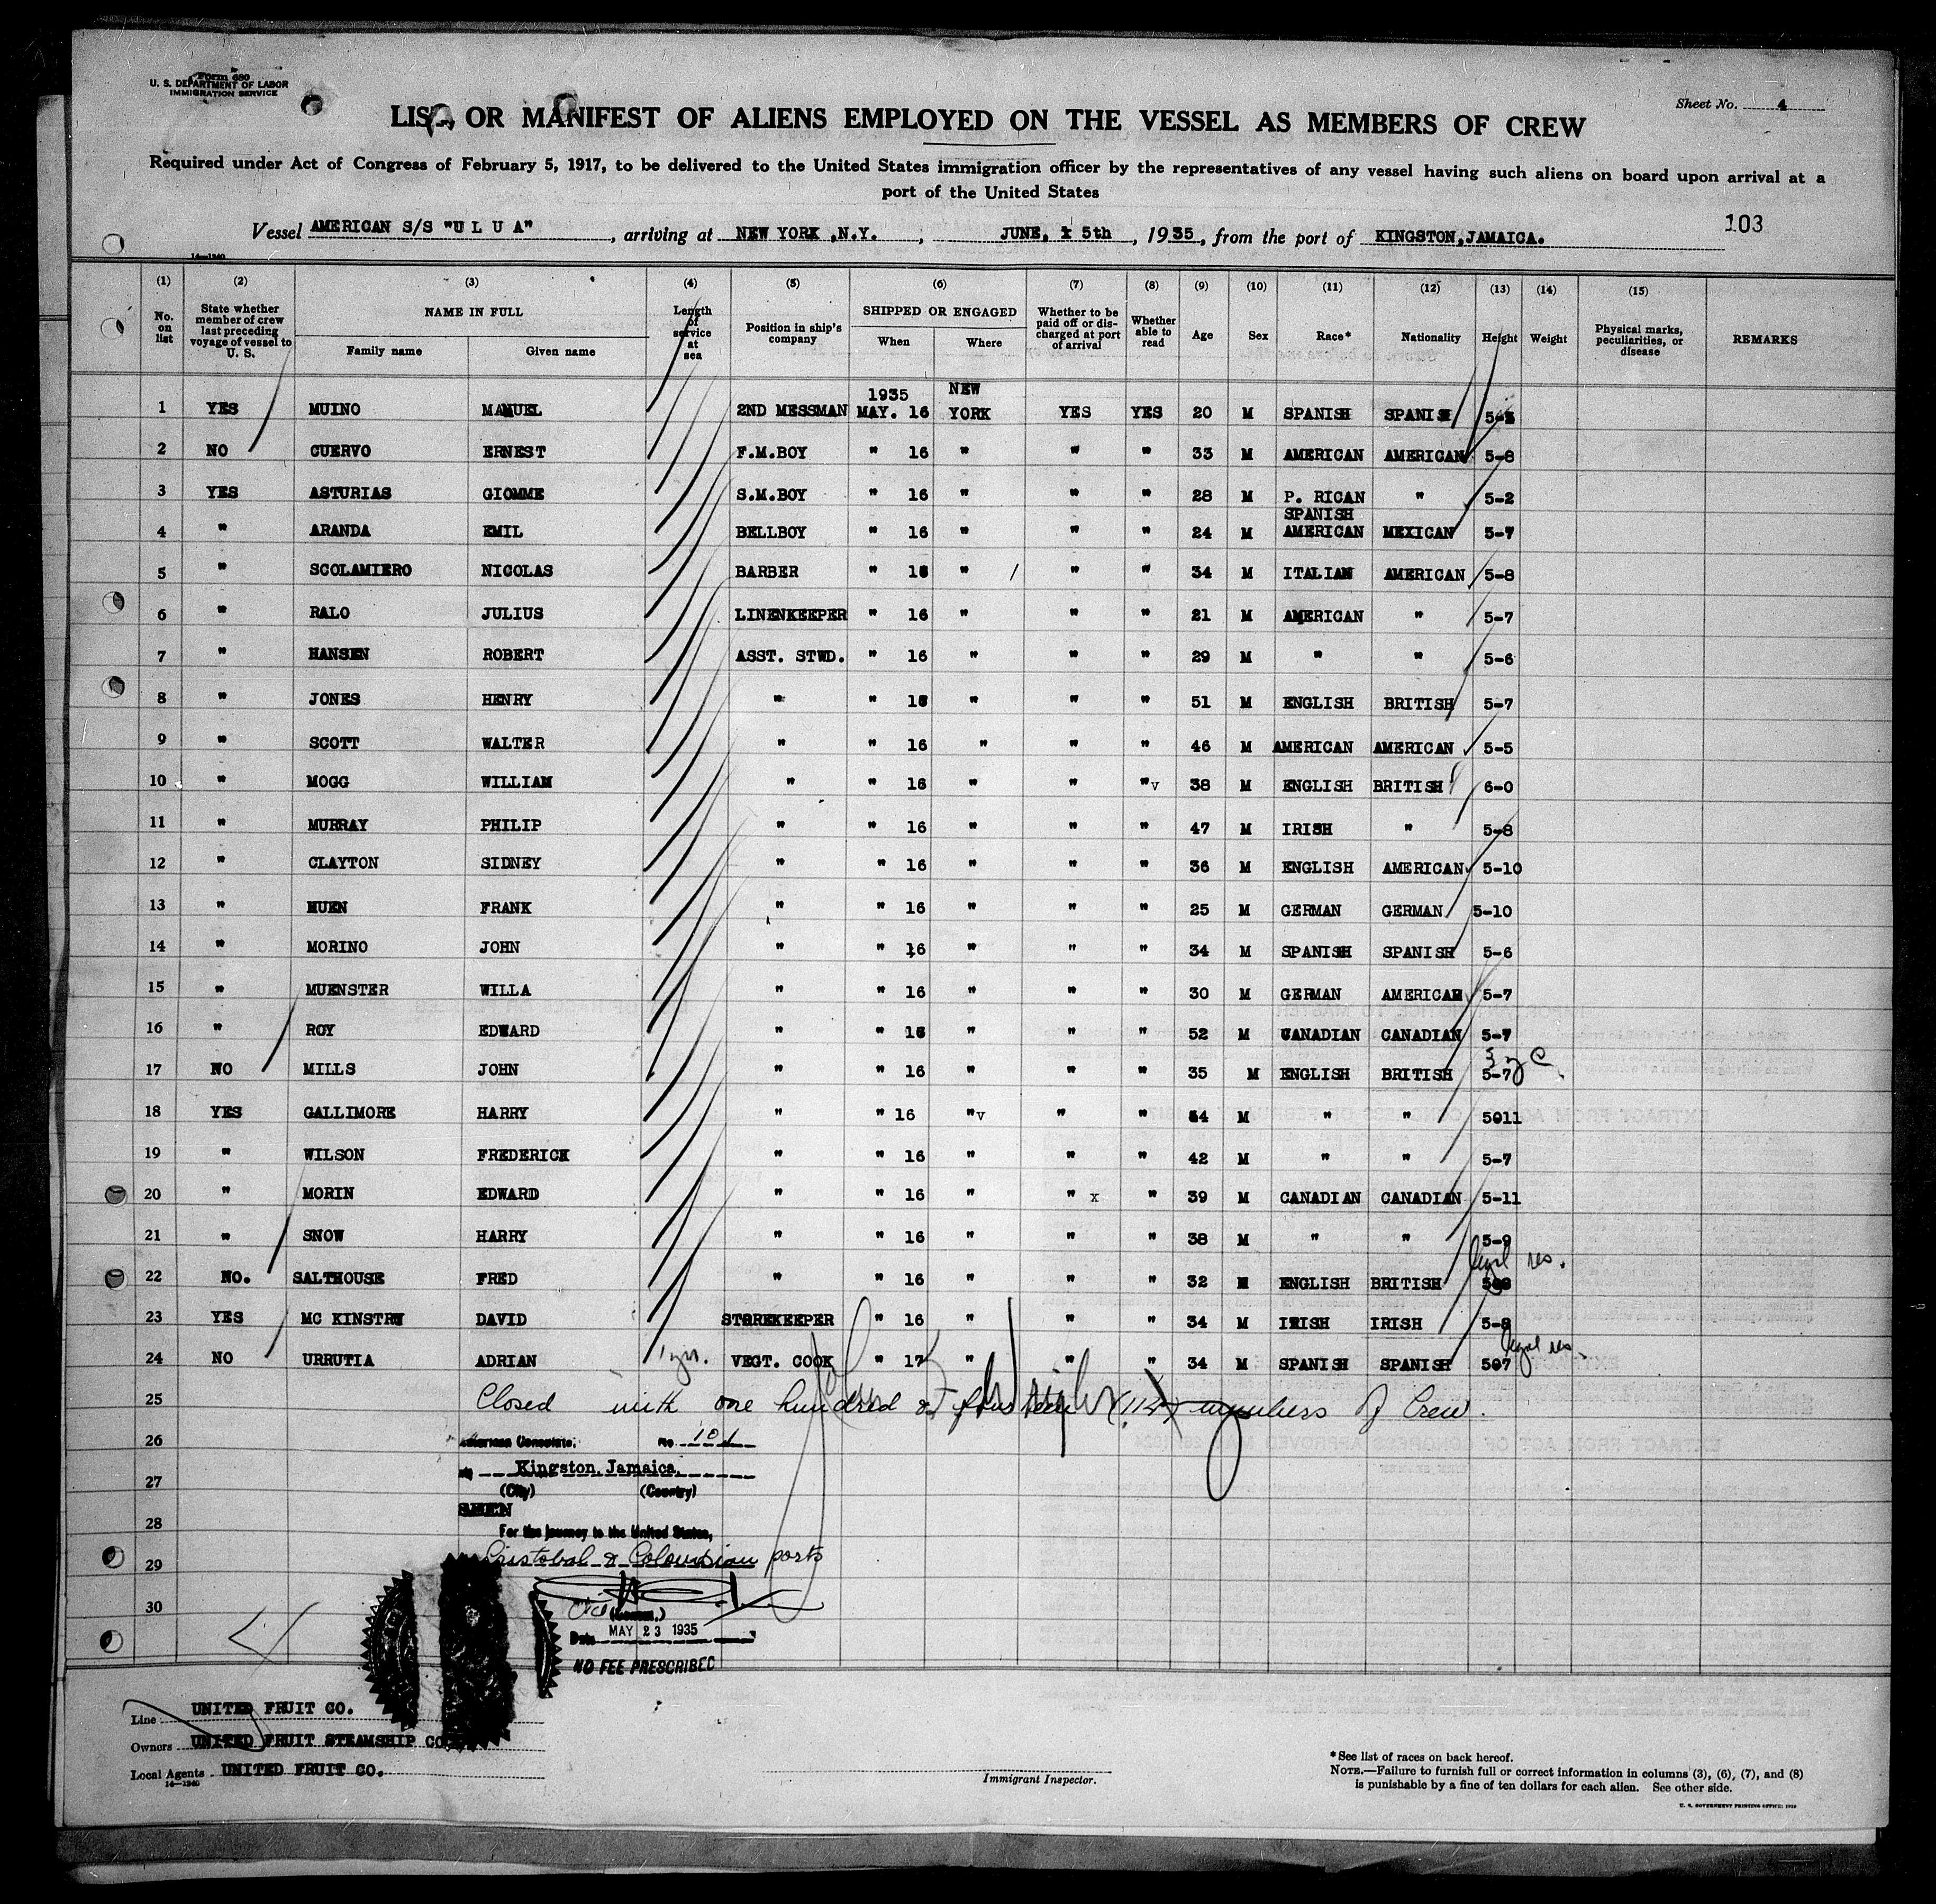 Form 680
U. S. DEPARTMENT OF LABOR
IMMIGRATION SERVICE
Sheet No. 4
LIST OR MANIFEST OF ALIENS EMPLOYED ON THE VESSEL AS MEMBERS OF CREW
Required under Act of Congress of February 5, 1917, to be delivered to the United States immigration officer by the representatives of any vessel having such aliens on board upon arrival at a
port of the United States
103
Vessel AMERICAN S/S "U L U A", arriving at NEW YORK ,N.Y., JUNE, 5th, 1935, from the port of KINGSTON,JAMAICA.
14—1240
(1) (2) (3) (4) (5) (6) (7) (8) (9) (10) (11) (12) (13) (14) (15)
No. on list State whether member of crew last preceding voyage of vessel to U. S. NAME IN FULL Family name Given name Length of service at sea Position in ship's company SHIPPED OR ENGAGED When Where Whether to be paid off or discharged at port of arrival Whether able to read Age Sex Race* Nationality Height Weight Physical marks, peculiarities, or disease REMARKS
1935 NEW
1 YES MUINO MANUEL 2ND MESSMAN MAY. 16 YORK YES YES 20 M SPANISH SPANISH
2 NO CUERVO ERNEST F.M.BOY " 16 " " " 33 M AMERICAN AMERICAN 5-8
3 YES ASTURIAS GIOMME S.M.BOY " 16 " " " 28 M P. RICAN " 5-2
SPANISH
4 " ARANDA EMIL BELLBOY " 16 " " " 24 M AMERICAN MEXICAN 5-7
5 " SCOLAMIERO NICOLAS BARBER " 16 " / " " 34 M ITALIAN AMERICAN 5-8
6 " RALO JULIUS LINENKEEPER " 16 " " " 21 M AMERICAN " 5-7
7 " HANSEN ROBERT ASST. STWD. " 16 " " " 29 M " " 5-6
8 " JONES HENRY " " 16 " " " 51 M ENGLISH BRITISH 5-7
9 " SCOTT WALTER " " 16 " " " 46 M AMERICAN AMERICAN 5-5
10 " MOGG WILLIAM " " 16 " " "v 38 M ENGLISH BRITISH 6-0
11 " MURRAY PHILIP " " 16 " " " 47 M IRISH " 5-8
12 " CLAYTON SIDNEY " " 16 " " " 36 M ENGLISH AMERICAN 5-10
13 " HUEN FRANK " " 16 " " " 25 M GERMAN GERMAN 5-10
14 " MORINO JOHN " " 16 " " " 34 M SPANISH SPANISH 5-6
15 " MUENSTER WILLA " " 16 " " " 30 M GERMAN AMERICAN 5-7
16 " ROY EDWARD " " 16 " " " 52 M CANADIAN CANADIAN 5-7
17 NO MILLS JOHN " " 16 " " " 35 M ENGLISH BRITISH 5-7
18 YES GALLIMORE HARRY " " 16 "v " " 54 M " " 5011
19 " WILSON FREDERICK " " 16 " " " 42 M " " 5-7
20 " MORIN EDWARD " " 16 " " x " 39 M CANADIAN CANADIAN 5-11
21 " SNOW HARRY " " 16 " " " 38 M " " 5-9
legal res.
22 NO. SALTHOUSE FRED " " 16 " " " 32 M ENGLISH BRITISH
23 YES MC KINSTRY DAVID STOREKEEPER " 16 " " " 34 M IRISH IRISH 5-8
legal res.
24 NO URRUTIA ADRIAN 1 yr. VEGT. COOK " 17 " " " 34 M SPANISH SPANISH 507
25 Closed with one hundred & fourteen (114) members of Crew.
26 American Consulate, No. 101
27 Kingston, Jamaica,
(City) (Country)
28 SEEN
For the journey to the United States,
29 Cristobal & Colombian ports
30
Date MAY 23 1935
NO FEE PRESCRIBED
Line UNITED FRUIT CO.
Owners UNITED FRUIT STEAMSHIP CO.
Local Agents UNITED FRUIT CO.
14—1240
Immigrant Inspector.
*See list of races on back hereof.
NOTE.—Failure to furnish full or correct information in columns (3), (6), (7), and (8)
is punishable by a fine of ten dollars for each alien. See other side.
U. S. GOVERNMENT PRINTING OFFICE: